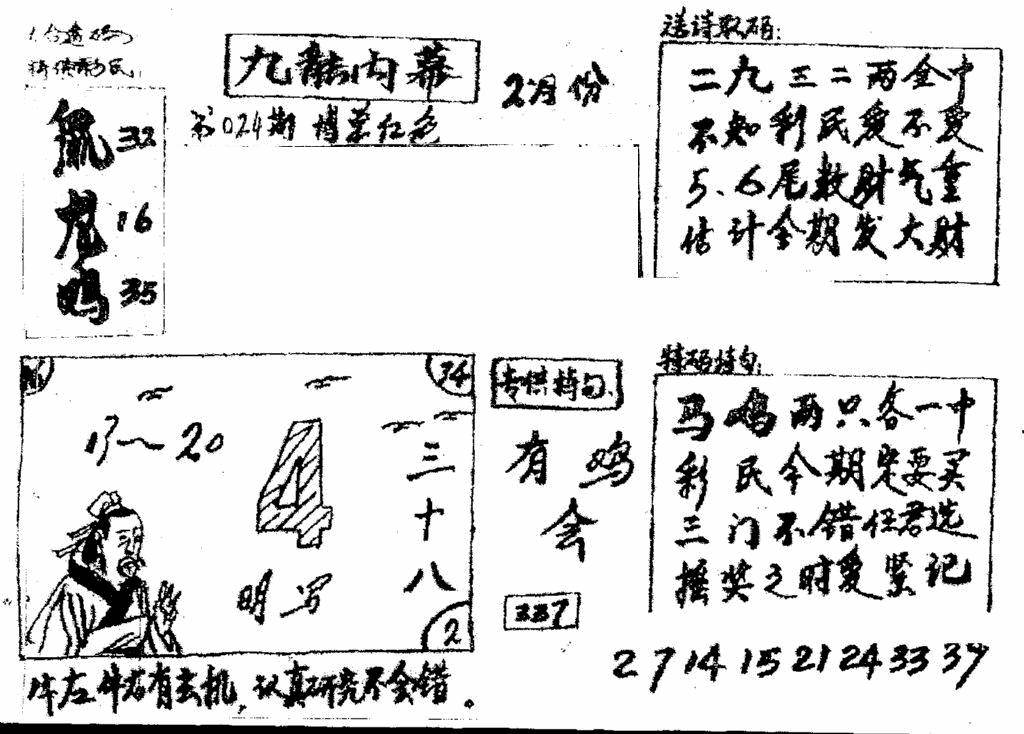 六合透码
特供彩民:
鼠32
龙16
鸡35
九龙内幕
2月份
第024期 博荣红色
送诗取码:
二九三二两全中
不知彩民爱不爱
5、6尾数财气重
估计今期发大财
13~20
4
明写
三十八
34
2
牛左牛右有玄机,认真研究不会错。
专供特句、
有鸡
会
337
特码特句:
马鸡两只各一中
彩民今期定要买
三门不错任君选
摇奖之时要紧记
2 7 14 15 21 24 33 37